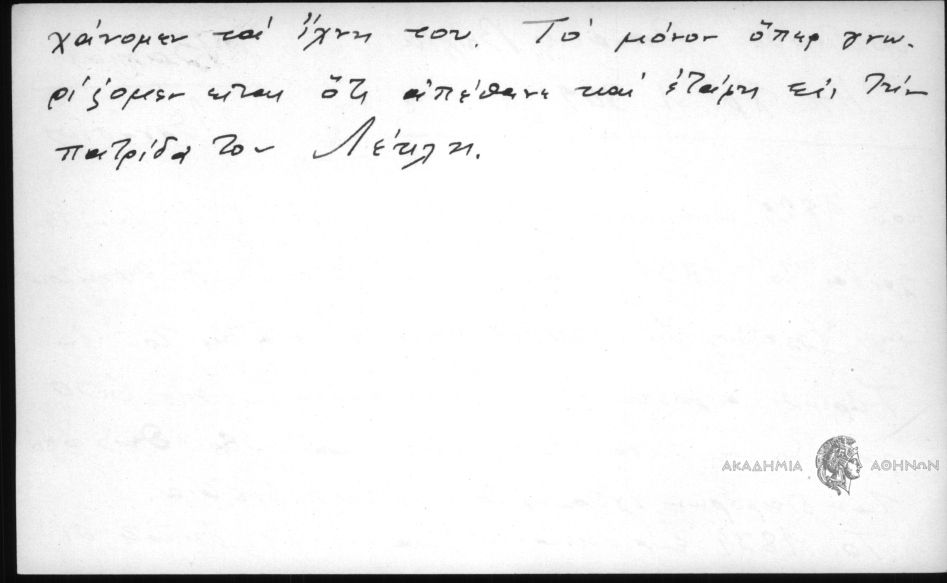 χάνομεν τά ἴχνη του. Τό μόνον ὅπερ γνω-
ρίζομεν εἶναι ὅτι ἀπέθανε καί ἐτάφη εἰς τήν
πατρίδα του
ΑΚΑΔΗΜΙΑ ΑΘΗΝΩΝ